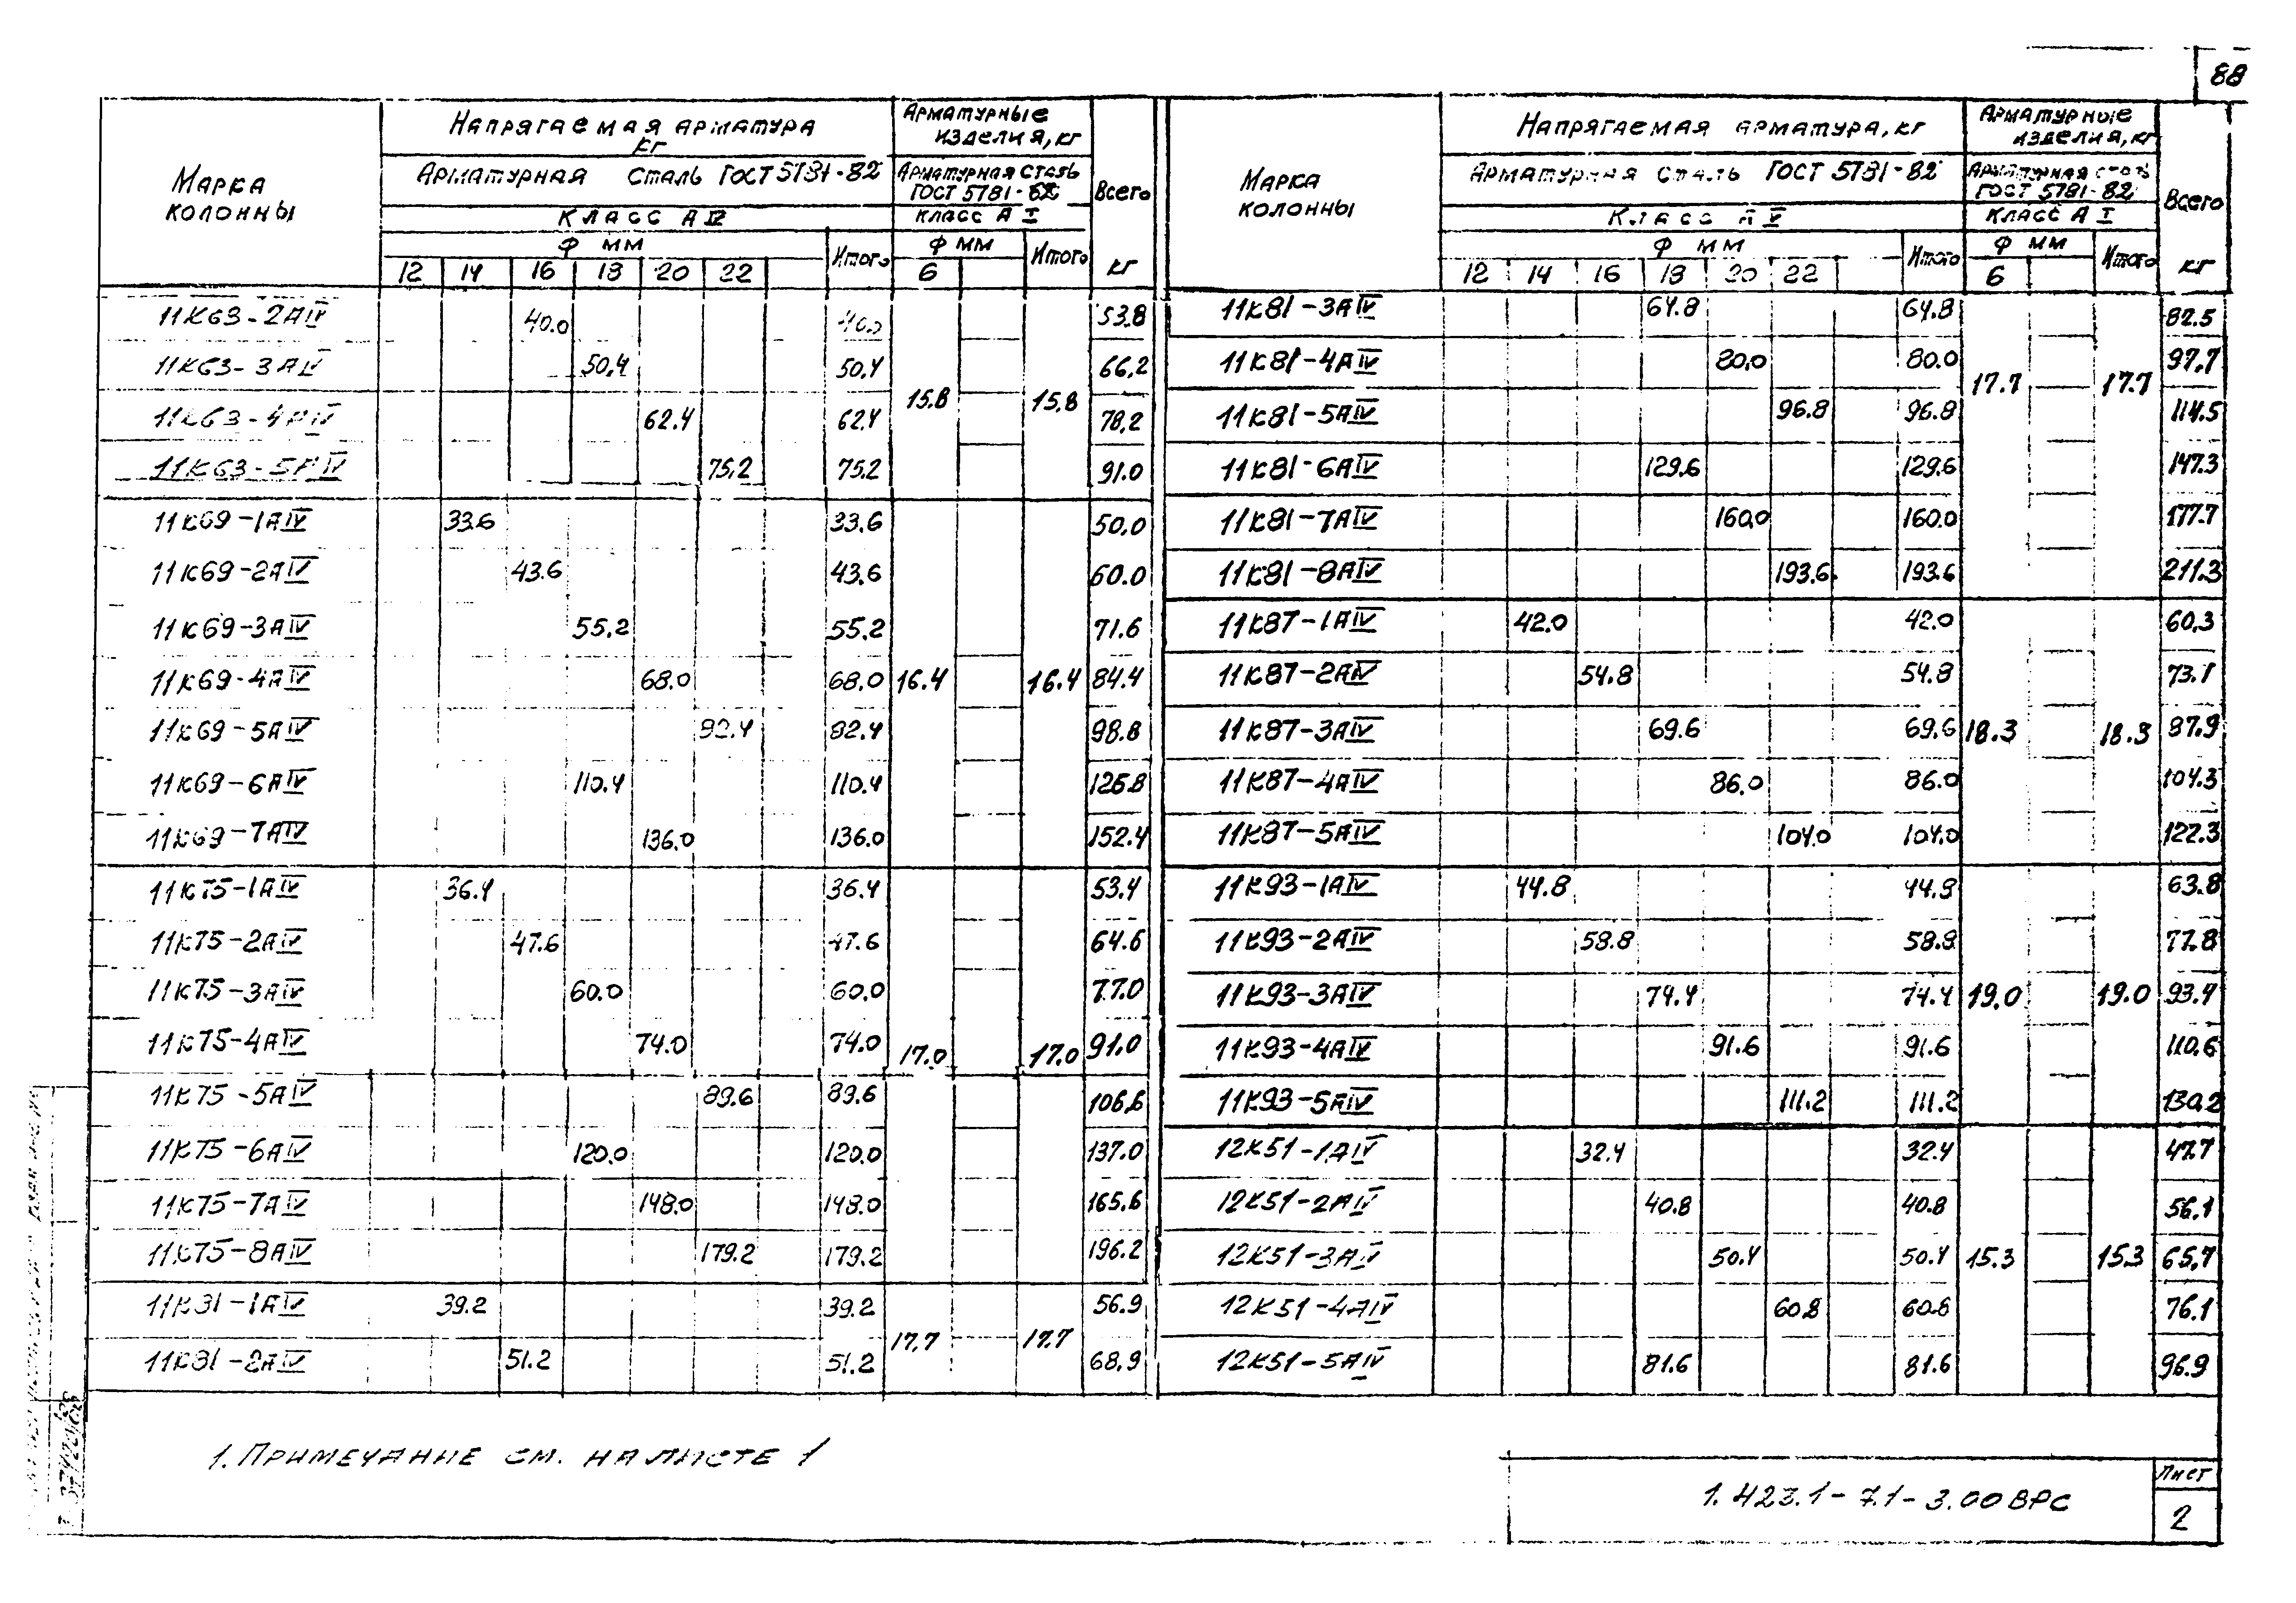 88
Марка колонны | Напрягаемая арматура кг | Арматурные изделия, кг | Всего кг
Арматурная сталь ГОСТ 5781-82 | Арматурная сталь ГОСТ 5781-82
Класс А IV | Класс А I
Ф мм | Итого | Ф мм | Итого
12 14 16 18 20 22 | 6
11К63-2АIV 40.0 40.0 53.8
11К63-3АIV 50.4 50.4 66.2
15.8 15.8
11К63-4АIV 62.4 62.4 78.2
11К63-5АIV 75.2 75.2 91.0
11К69-1АIV 33.6 33.6 50.0
11К69-2АIV 43.6 43.6 60.0
11К69-3АIV 55.2 55.2 71.6
11К69-4АIV 68.0 68.0 16.4 16.4 84.4
11К69-5АIV 82.4 82.4 98.8
11К69-6АIV 110.4 110.4 126.8
11К69-7АIV 136.0 136.0 152.4
11К75-1АIV 36.4 36.4 53.4
11К75-2АIV 47.6 47.6 64.6
11К75-3АIV 60.0 60.0 77.0
11К75-4АIV 74.0 74.0 17.0 17.0 91.0
11К75-5АIV 89.6 89.6 106.6
11К75-6АIV 120.0 120.0 137.0
11К75-7АIV 148.0 148.0 165.6
11К75-8АIV 179.2 179.2 196.2
11К81-1АIV 39.2 39.2 56.9
17.7 17.7
11К81-2АIV 51.2 51.2 68.9
Марка колонны | Напрягаемая арматура, кг | Арматурные изделия, кг | Всего кг
Арматурная сталь ГОСТ 5781-82 | Арматурная сталь ГОСТ 5781-82
Класс А V | Класс А I
Ф мм | Итого | Ф мм | Итого
12 14 16 18 20 22 | 6
11К81-3АIV 64.8 64.8 82.5
11К81-4АIV 80.0 80.0 97.7
17.7 17.7
11К81-5АIV 96.8 96.8 114.5
11К81-6АIV 129.6 129.6 147.3
11К81-7АIV 160.0 160.0 177.7
11К81-8АIV 193.6 193.6 211.3
11К87-1АIV 42.0 42.0 60.3
11К87-2АIV 54.8 54.8 73.1
11К87-3АIV 69.6 69.6 18.3 18.3 87.9
11К87-4АIV 86.0 86.0 104.3
11К87-5АIV 104.0 104.0 122.3
11К93-1АIV 44.8 44.8 63.8
11К93-2АIV 58.8 58.8 77.8
11К93-3АIV 74.4 74.4 19.0 19.0 93.4
11К93-4АIV 91.6 91.6 110.6
11К93-5АIV 111.2 111.2 130.2
12К51-1АIV 32.4 32.4 47.7
12К51-2АIV 40.8 40.8 56.1
12К51-3АIV 50.4 50.4 15.3 15.3 65.7
12К51-4АIV 60.8 60.8 76.1
12К51-5АIV 81.6 81.6 96.9
1. Примечание см. на листе 1
1.423.1-7.1-3.00ВРС
Лист
2